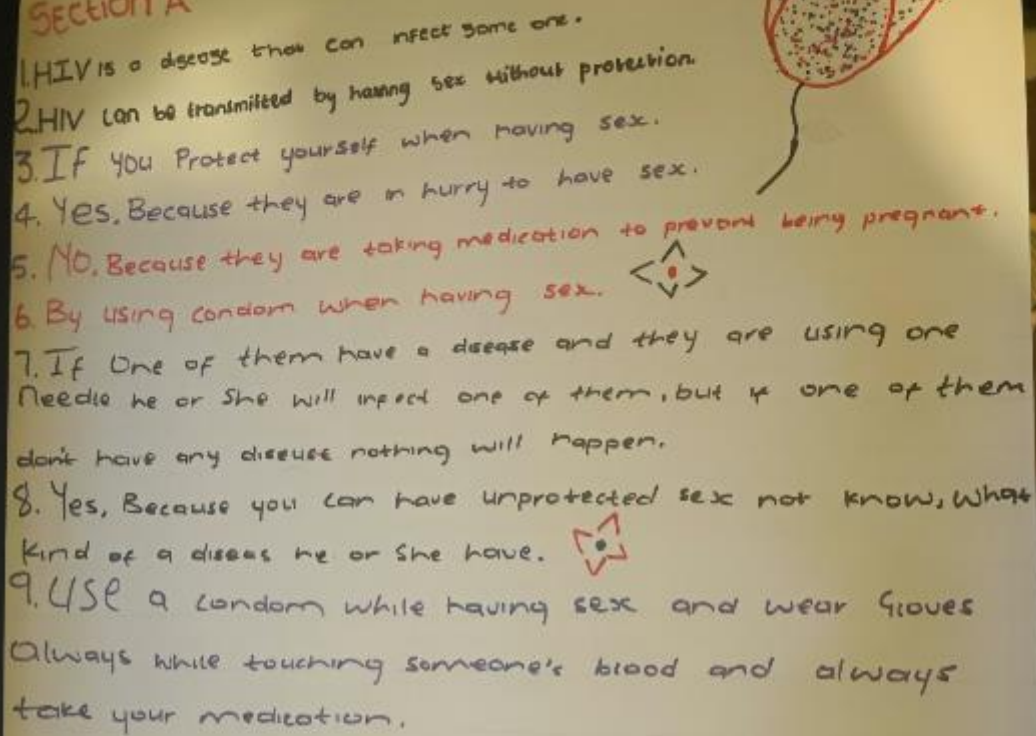 Section A
1. HIV is a disease that can infect some one.
2. HIV can be transmitted by having sex without protection.
3. If you Protect yourself when having sex.
4. Yes. Because they are in hurry to have sex.
5. No. Because they are taking medication to prevent being pregnant.
6. By using condom when having sex.
7. If One of them have a disease and they are using one
Needle he or She will infect one of them, but if one of them
don't have any disease nothing will happen.
8. Yes, Because you can have unprotected sex not know, what
kind of a diseas he or She have.
9. Use a condom while having sex and wear Gloves
always while touching someone's blood and always
take your medication.